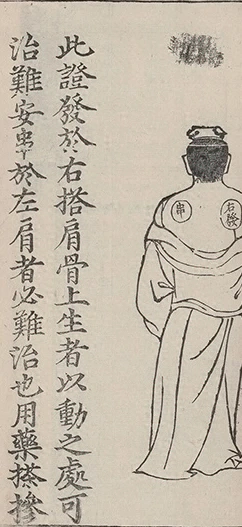 右發
串
此證發於右搭肩骨上生者以動之處可
治難安串於左肩者必難治也用藥搽摻